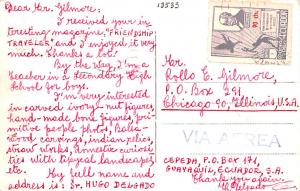 Dear Mr. Gilmore: 12535
I received your in
teresting magazine, "FRIENDSHIP
TRAVELER" and I enjoyed it very
much. Thanks a lot.
By the way, I'm a
teacher in a Secondary High
School for boys.
I'm very interested
in carved ivory-nut figures,
hand-made bone figures, pri-
mitive people photos, Balsa-
wood carvings, indian relics,
straw works, domestic curiosi
ties with tipycal landscapes
etc.
My full name and
address is: Sr. HUGO DELGADO
Mr.
Rollo E. Gilmore,
P.O. Box 291
Chicago 90, Illinois, U.S.A.
VIA AEREA
CEPEDA, P.O. BOX 171,
GUAYAQUIL, ECUADOR, S.A.
Thank you again
HDelgado